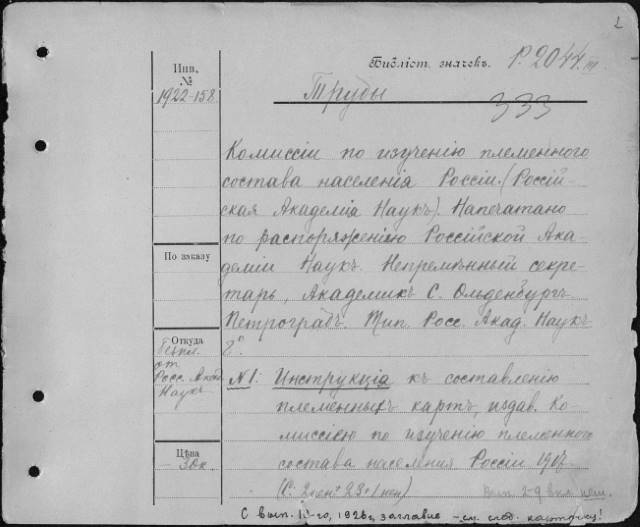 2
Библіот. значекъ. Р. 2044/III
Инв.
№
1922-158
Труды
333
Комиссіи по изученію племенного
состава населенія Россіи. (Россій-
ская Академія Наукъ). Напечатано
по распоряженію Россійской Ака-
деміи Наукъ. Непремѣнный секре-
тарь, Академикъ С. Ольденбургъ
Петроградъ. Тип. Росс. Акад. Наукъ
8°.
По заказу
Откуда
безпл.
от
Росс. Акад.
Наукъ
Цѣна
- 30к.
№1: Инструкція къ составленію
племенныхъ картъ, издав. Ко-
миссіею по изученію племенного
состава населенія Россіи 1917.
23 + 1 нен)
вып. 2-9 вкл.
С вып. 1926 г, заглавие - см. след. карточку!